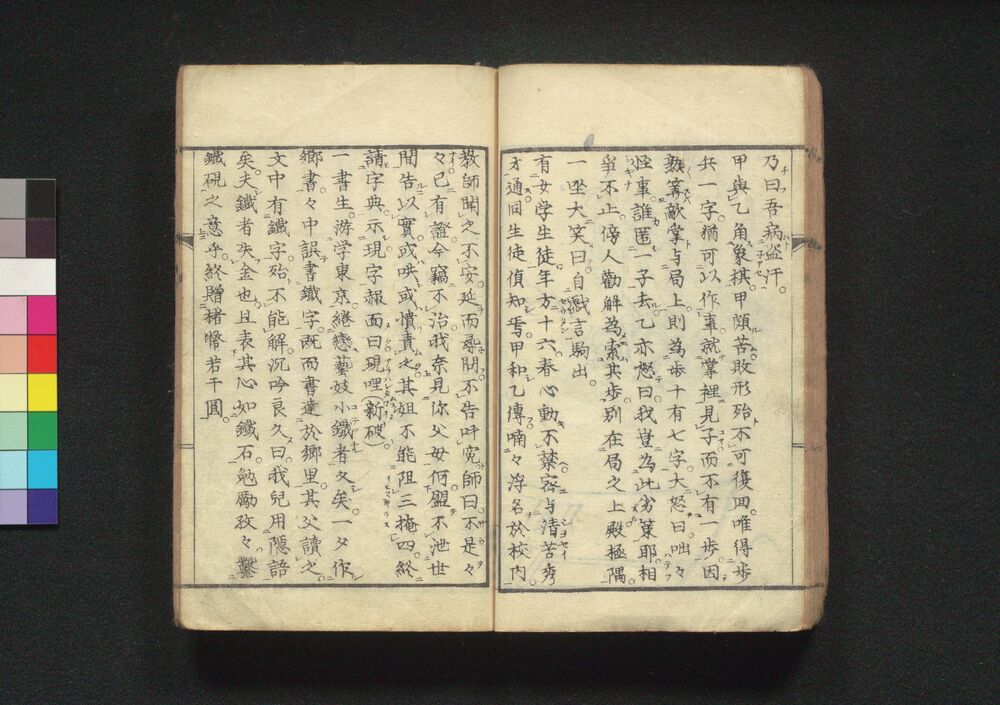 乃曰吾病盜汗。
甲與乙角象棋。甲頗苦敗形殆不可復回。唯得步
兵一字。猶可以作事。就掌裡見子。而不有一步。因
熟案敵掌与局上。則為步十有七字。大怒曰。咄々
怪事。誰匿一子去。乙亦怒曰。我豈為此劣策耶。相
爭不止。傍人勸解為索其步。別在局之上殿極隅。
一坐大笑曰。自戲言駒出。
有女学生徒。年方十六。春心動不禁。密与清苦秀
才通。同生徒偵知焉。甲和乙傳。喃々浮名於校内。
教師聞之不安。延而尋問。不告。呼寃。師曰。不是々
々。已有證。今竊不治。我奈見你父母何。盟不泄世
間。告以實。或哄或憤責之。其姐不能阻三掩四。終
請字典。示現字。報面曰。現哩(新破)。
一書生。游学東京。綣戀藝妓小鐵者久矣。一夕作
鄉書。々中誤書鐵字。既而書達於鄉里。其父讀之。
文中有鐵字。殆不能解。沉吟良久曰。我兒用隱語
矣。夫鐵者失金也。且表其心如鐵石。勉勵孜々鑿
鐵硯之意乎。終贈楮幣若干圓。